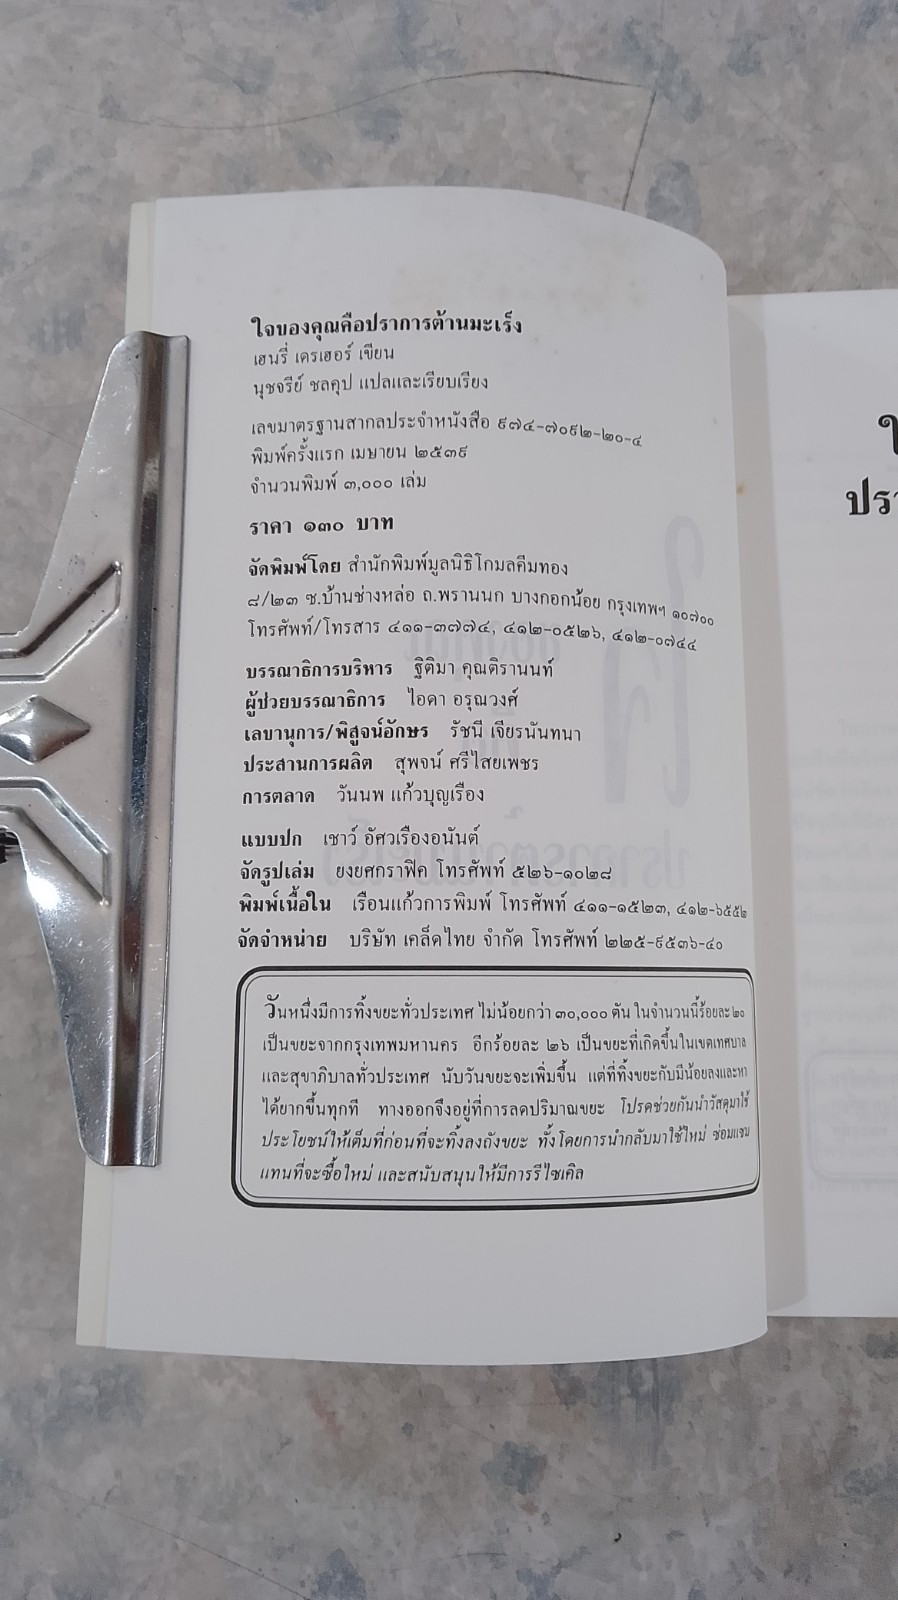 ใจของคุณคือปราการต้านมะเร็ง
เฮนรี่ เดรเฮอร์ เขียน
นุชจรีย์ ชลคุป แปลและเรียบเรียง
เลขมาตรฐานสากลประจำหนังสือ ๙๗๔-๗๐๙๒-๒๐-๔
พิมพ์ครั้งแรก เมษายน ๒๕๓๙
จำนวนพิมพ์ ๓,๐๐๐ เล่ม
ราคา ๑๓๐ บาท
จัดพิมพ์โดย สำนักพิมพ์มูลนิธิโกมลคีมทอง
๘/๒๓ ซ.บ้านช่างหล่อ ถ.พรานนก บางกอกน้อย กรุงเทพฯ ๑๐๗๐๐
โทรศัพท์/โทรสาร ๔๑๑-๓๗๗๔, ๔๑๒-๐๕๒๖, ๔๑๒-๐๗๔๔
บรรณาธิการบริหาร ฐิติมา คุณติรานนท์
ผู้ช่วยบรรณาธิการ ไอดา อรุณวงศ์
เลขานุการ/พิสูจน์อักษร รัชนี เจียรนันทนา
ประสานการผลิต สุพจน์ ศรีไสยเพชร
การตลาด วันนพ แก้วบุญเรือง
แบบปก เชาว์ อัศวเรืองอนันต์
จัดรูปเล่ม ยงยศกราฟิค โทรศัพท์ ๕๒๖-๑๐๒๘
พิมพ์เนื้อใน เรือนแก้วการพิมพ์ โทรศัพท์ ๔๑๑-๑๕๒๓, ๔๑๒-๖๕๕๒
จัดจำหน่าย บริษัท เคล็ดไทย จำกัด โทรศัพท์ ๒๒๕-๙๕๓๖-๔๐
วันหนึ่งมีการทิ้งขยะทั่วประเทศ ไม่น้อยกว่า ๓๐,๐๐๐ ตัน ในจำนวนนี้ร้อยละ ๒๐
เป็นขยะจากกรุงเทพมหานคร อีกร้อยละ ๒๖ เป็นขยะที่เกิดขึ้นในเขตเทศบาล
และสุขาภิบาลทั่วประเทศ นับวันขยะจะเพิ่มขึ้น แต่ที่ทิ้งขยะกับมีน้อยลงและหา
ได้ยากขึ้นทุกที ทางออกจึงอยู่ที่การลดปริมาณขยะ โปรดช่วยกันนำวัสดุมาใช้
ประโยชน์ให้เต็มที่ก่อนที่จะทิ้งลงถังขยะ ทั้งโดยการนำกลับมาใช้ใหม่ ซ่อมแซม
แทนที่จะซื้อใหม่ และสนับสนุนให้มีการรีไซเคิล